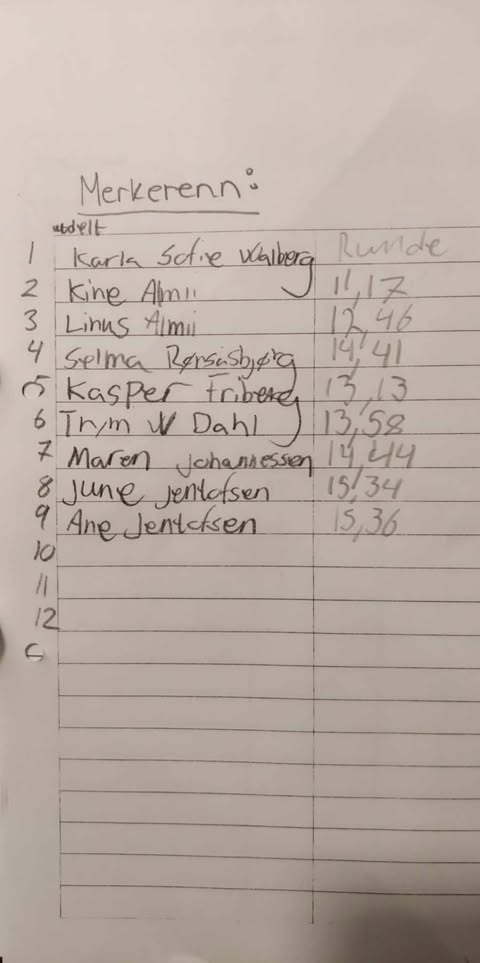 Merkerenn:
utdelt
1 Karla Sofie Walberg Runde
2 Kine Almli 11,17
3 Linus Almli 12,46
4 Selma 14,41
5 Kasper Friberg 13,13
6 Dahl 13,58
7 Maren Johannessen 14,44
8 June Jentofsen 15,34
9 Ane Jentofsen 15,36
10
11
12